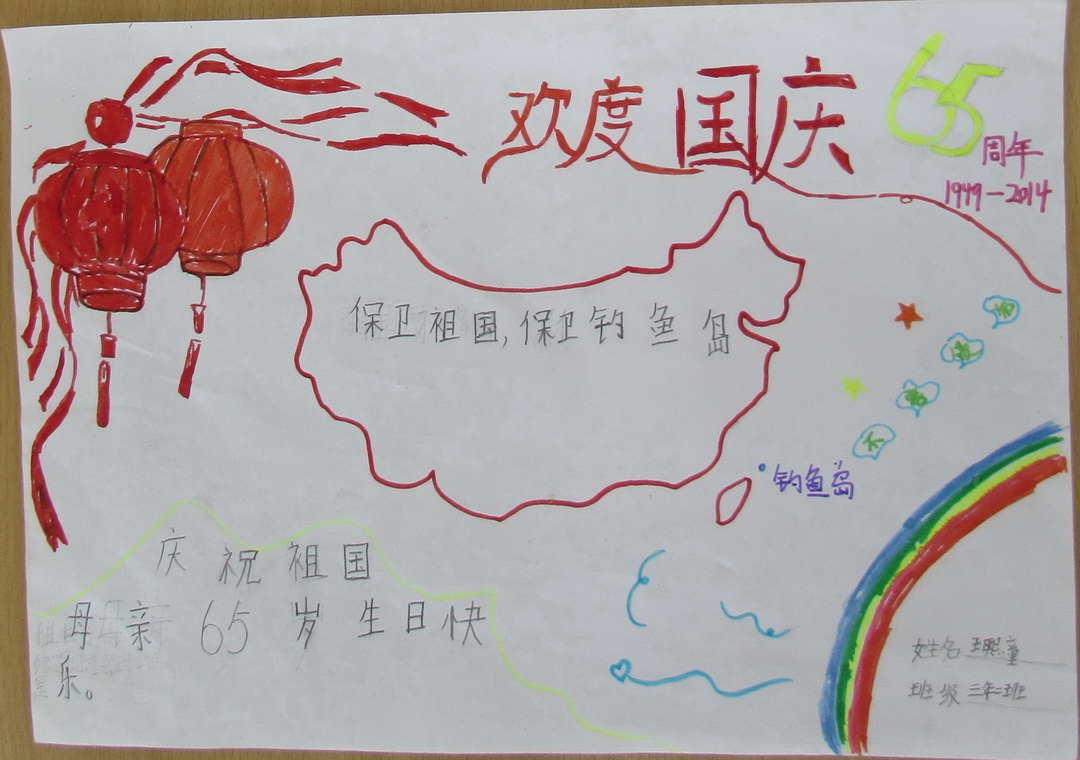 欢度国庆
65
周年
1949—2014
保卫祖国,保卫钓鱼岛
钓鱼岛
不
庆祝祖国
母亲65岁生日快
乐。
姓名 王熙童
班级 三年二班